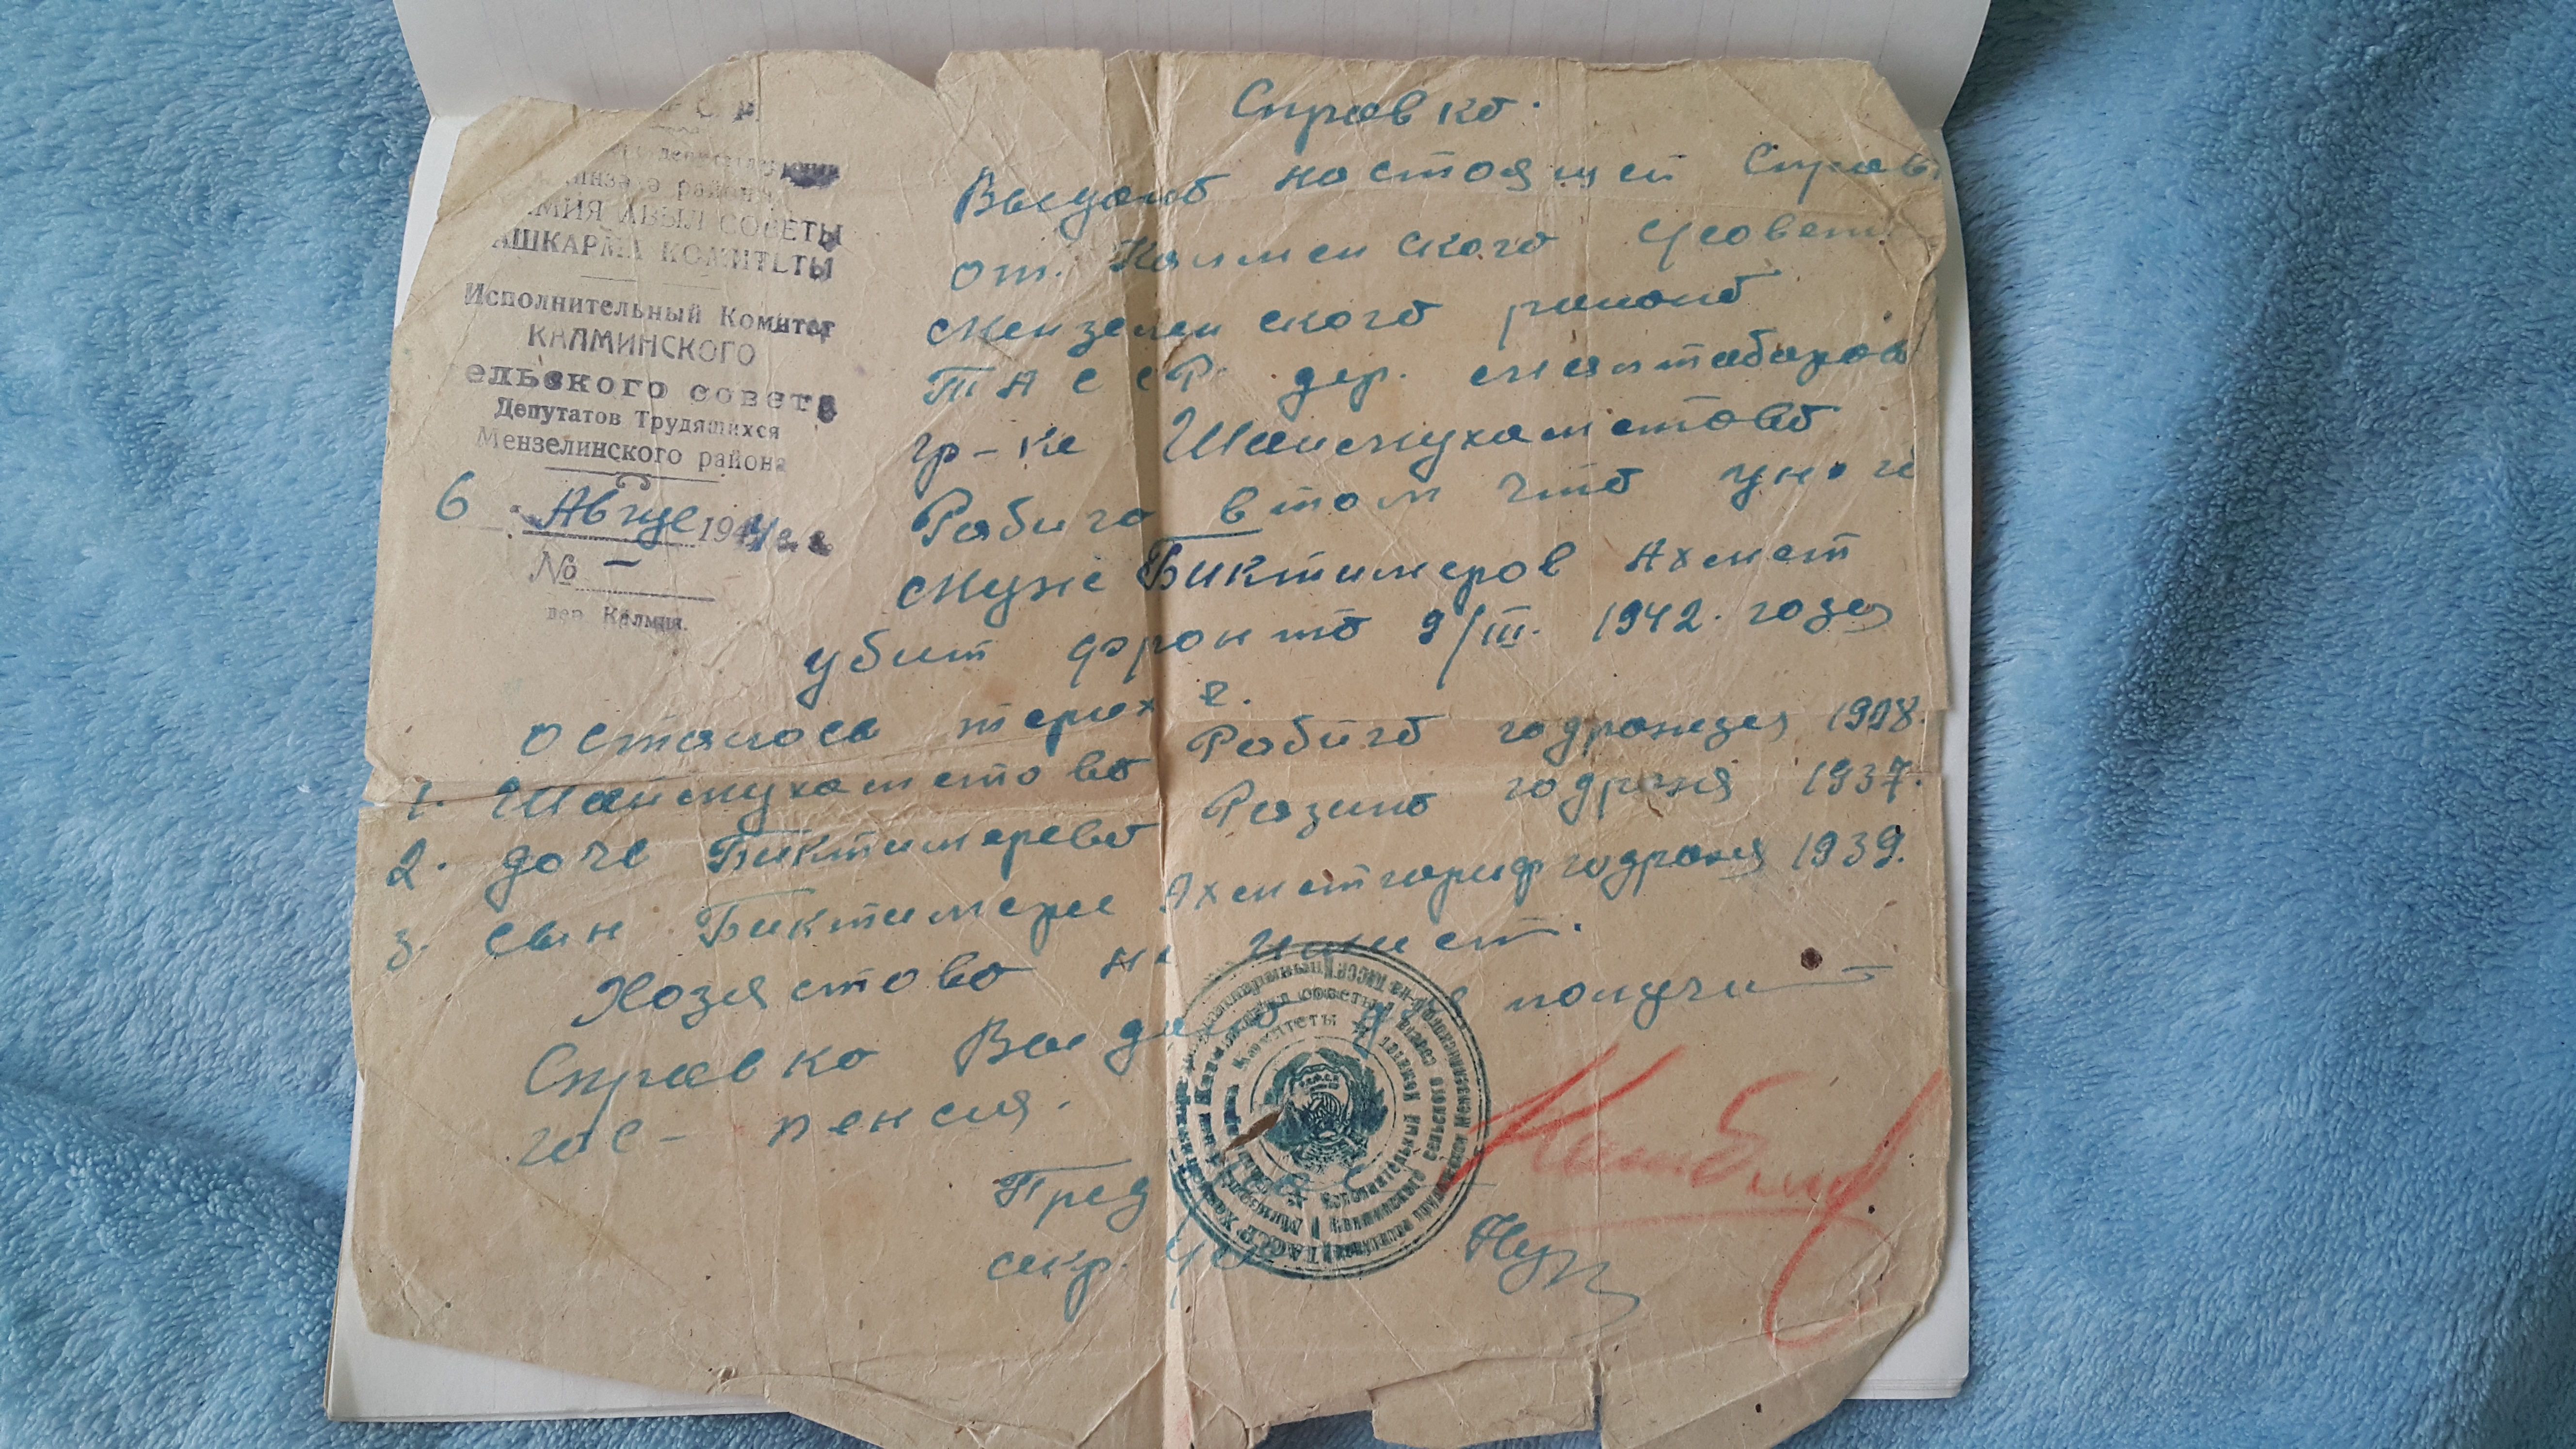 района
АВЫЛ СОВЕТЫ
АШКАРМА КОМИТЕТЫ
Исполнительный Комитет
КАЛМИНСКОГО
ельского совета
Депутатов Трудящихся
Мензелинского района
6 Авгус 194
№ –
дер. Калмия.
Справка.
Выдана настоящей Справ
от. Калменского с/совета
Мензеленского района
ТАССР. дер.
гр-ке Шаймухаметова
Рабига в том что у ней
муже Биктимеров Ахмет
убит фронта 9/III. 1942. года
осталось
1. Шаймухаметова Рабига годрожея 1908.
2. дочь Биктимерева Разина годрожя 1937.
3. сын Биктимере Ахметгариф годрожя 1939.
Хозяство не имеет.
Справка Выдана для получи
гос- пенсия.
Пред
секр.